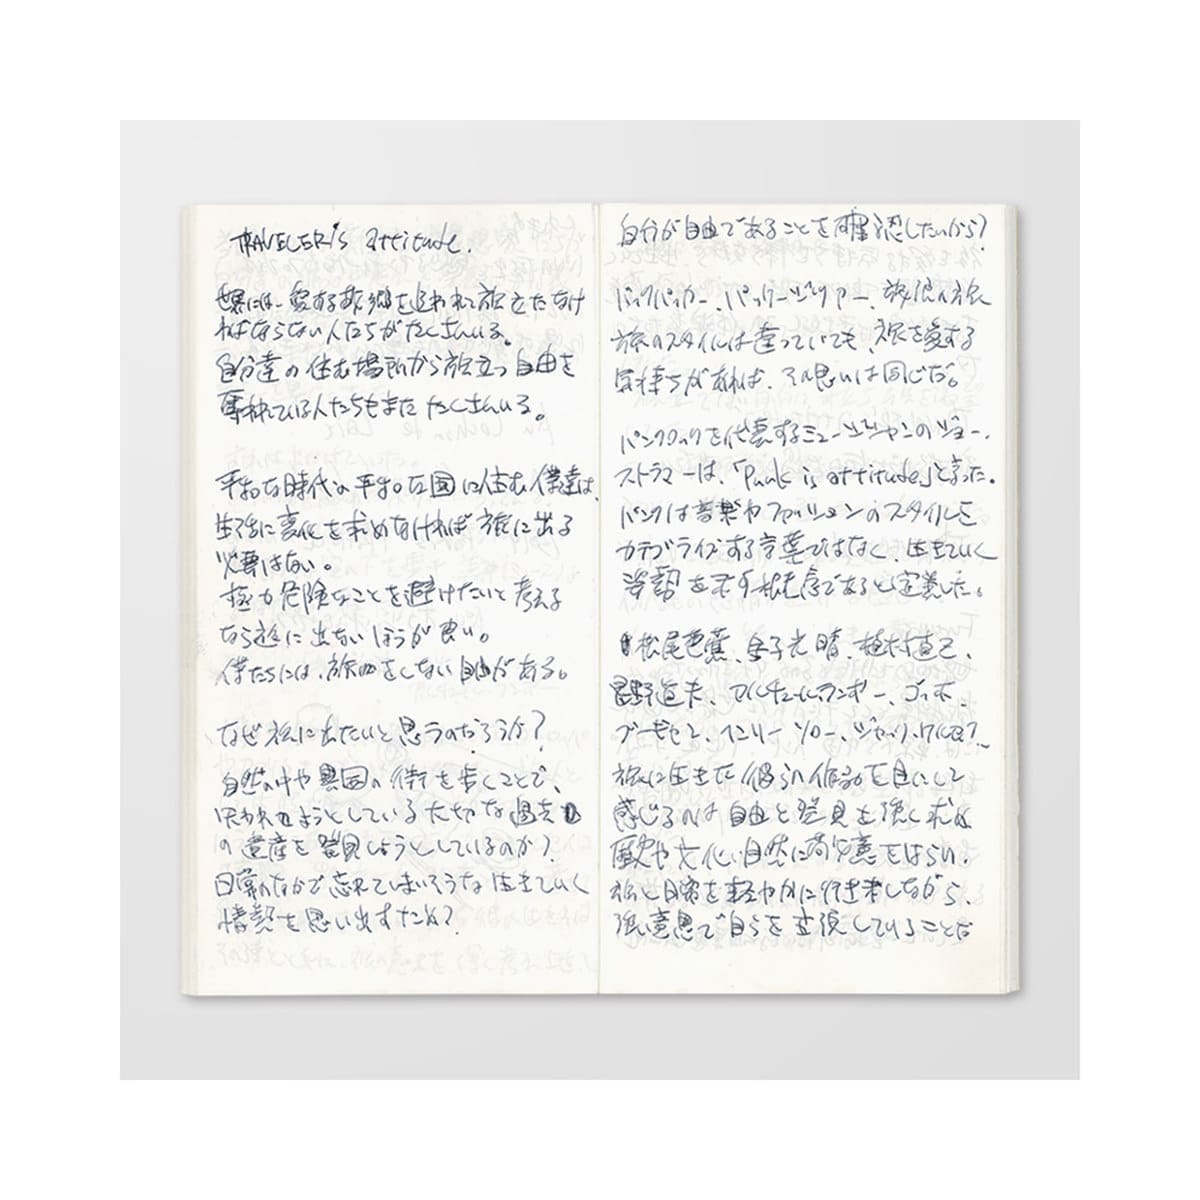 TRAVELER's attitude.
世界には、愛する故郷を追われて旅立たなけ
ればならない人たちがたくさんいる。
自分達の住む場所から旅立つ自由を
奪われている人たちもまたたくさんいる。
平和な時代の平和な国に住む僕達は、
生活に変化を求めなければ旅に出る
必要はない。
極力危険なことを避けたいと考える
なら旅に出ないほうが良い。
僕たちには、旅をしない自由がある。
なぜ旅に出たいと思うのだろうか?
自然の中や異国の街を歩くことで、
失われようとしている大切な過去
の遺産を発見しようとしているのか?
日常のなかで忘れてしまいそうな生きていく
情熱を思い出すため?
自分が自由であることを確認したいから?
バックパッカー、パッケージツアー、旅
旅のスタイルは違っていても、旅を愛する
気持ちがあれば、その思いは同じだ。
パンクロックを代表するミュージシャンのジョー・
ストラマーは、「Punk is attitude」と言った。
パンクは音楽やファッションのスタイルを
カテゴライズする言葉ではなく、生きていく
姿勢を示す概念であると定義した。
松尾芭蕉、金子光晴、植村直己、
星野道夫、アルチュール・ランボー、ゴッホ、
ゴーギャン、ヘンリー・ソロー、ジャック・ケルアック
旅に生きた彼らの作品を目にして
感じるのは自由と発見を強く求め
歴史や文化、自然に敬意をはらい、
旅と日常を軽やかに行き来しながら
強い意思で自らを主張していることだ